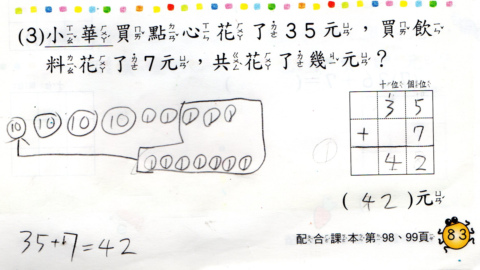 (3)小華買點心花了35元，買飲
料花了7元，共花了幾元？
10 10 10 10 1 1 1 1 1
1 1 1 1 1 1 1
十位 個位
1
3 5
+ 7
4 2
(42)元
35+7=42
配合課本第98、99頁 83